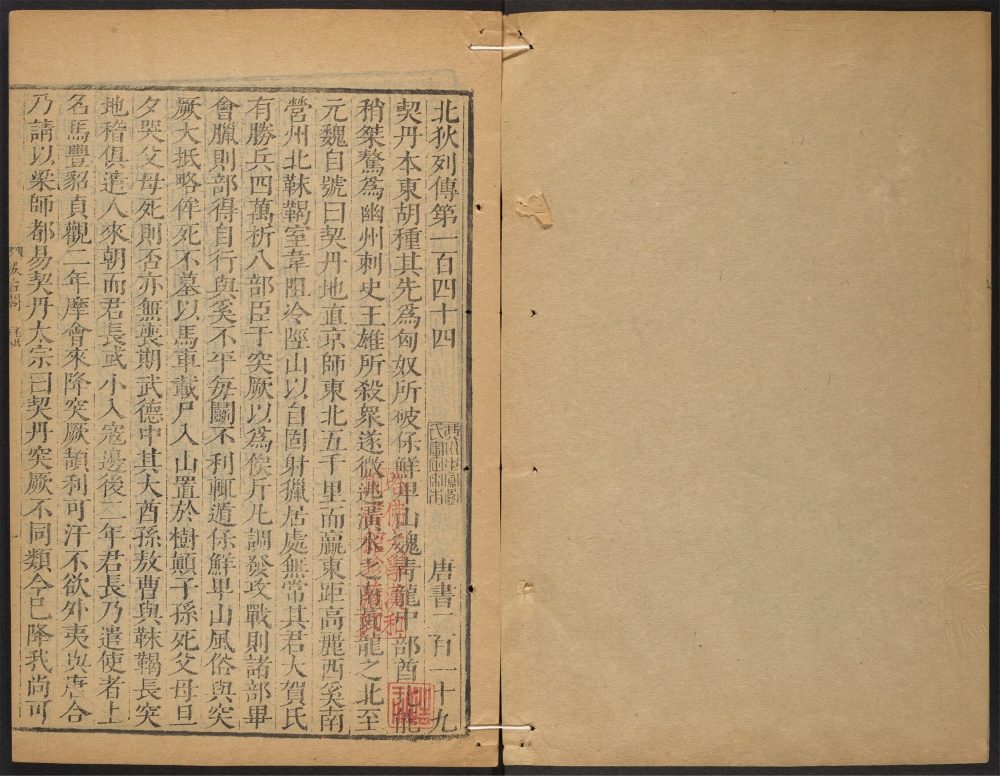 北狄列傳第一百四十四 唐書二百一十九
契丹本東胡種其先為匈奴所破保鮮卑山魏青龍中部酋比能
稍桀驁為幽州刺史王雄所殺衆遂微逃潢水之南黃龍之北至
元魏自號曰契丹地直京師東北五千里而贏東距高麗西奚南
營州北靺鞨室韋阻冷陘山以自固射獵居處無常其君大賀氏
有勝兵四萬析八部臣于突厥以為俟斤凡調發攻戰則諸部畢
會獵則部得自行與奚不平每鬭不利輒遁保鮮卑山風俗與突
厥大抵略侔死不墓以馬車載尸入山置於樹顛子孫死父母旦
夕哭父母死則否亦無喪期武德中其大酋孫敖曹與靺鞨長突
地稽俱遣人來朝而君長或小入寇邊後二年君長乃遣使者上
名馬豐貂貞觀二年摩會來降突厥頡利可汗不欲外夷與唐合
乃請以梁師都易契丹太宗曰契丹突厥不同類今已降我尚可
汲古閣
毛氏